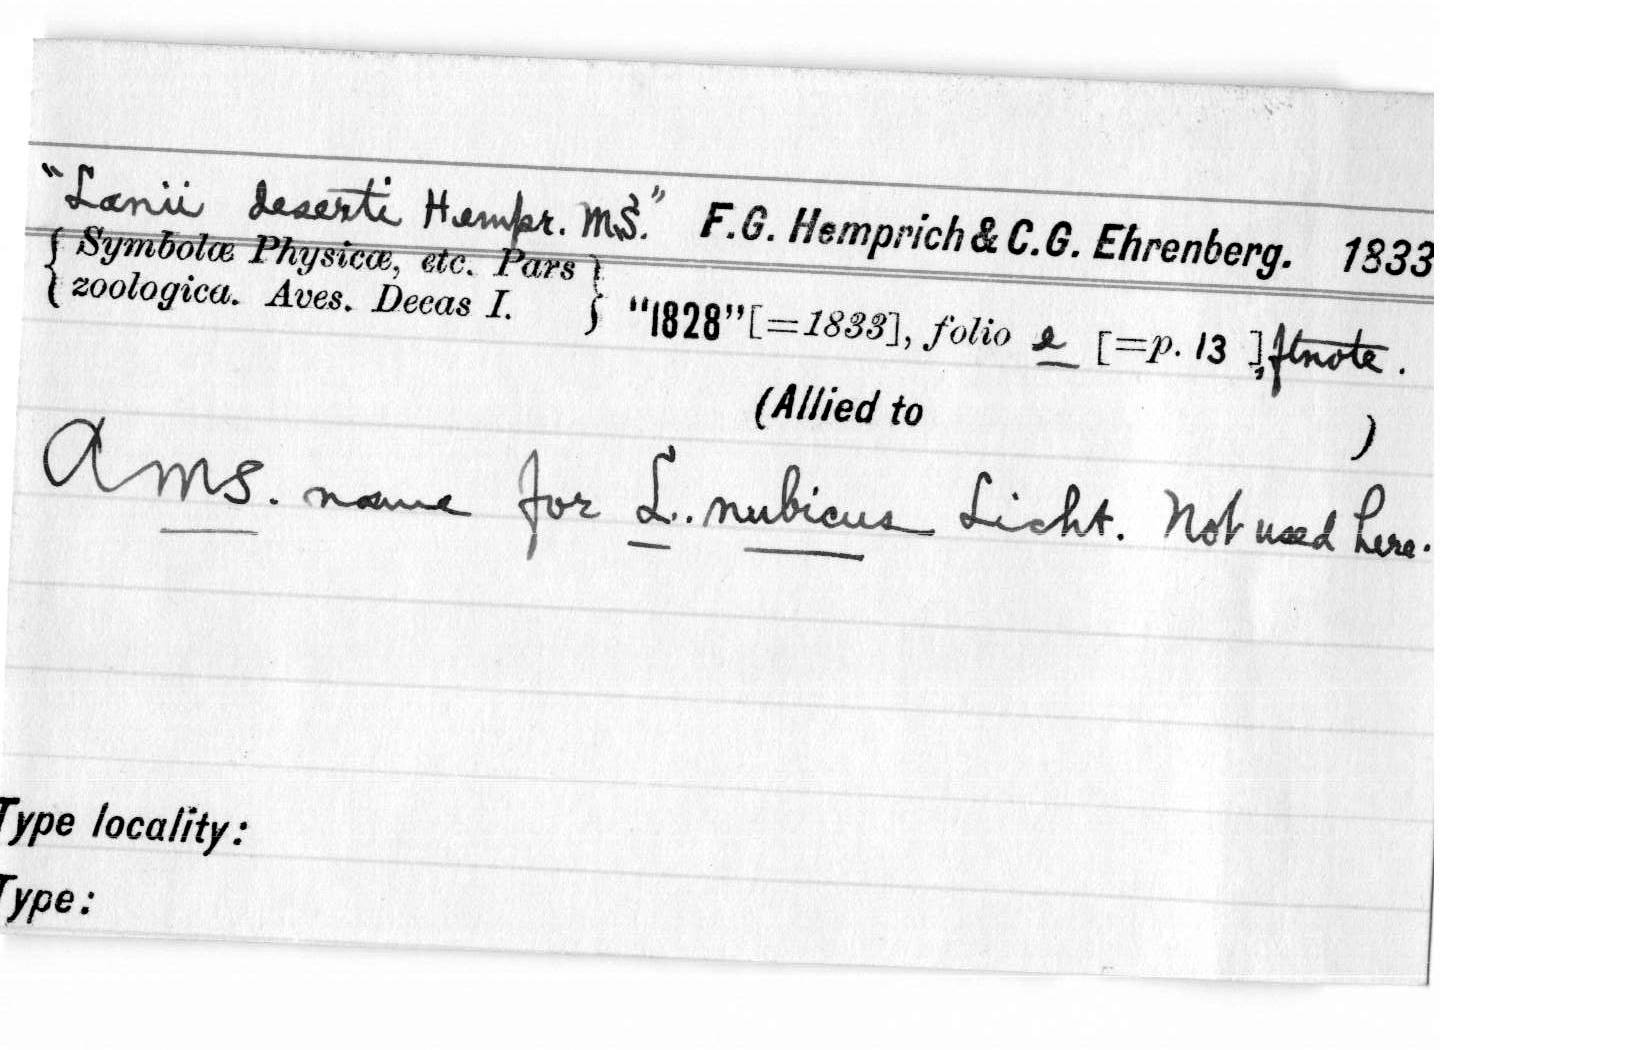 "Lanii deserti Hempr. MS." F.G. Hemprich & C.G. Ehrenberg. 1833
{ Symbolæ Physicæ, etc. Pars }
{ zoologica. Aves. Decas I. } "1828" [=1833], folio e [=p. 13 ], ftnote.
(Allied to )
A MS. name for L. nubicus Licht. Not used here.
Type locality:
Type: